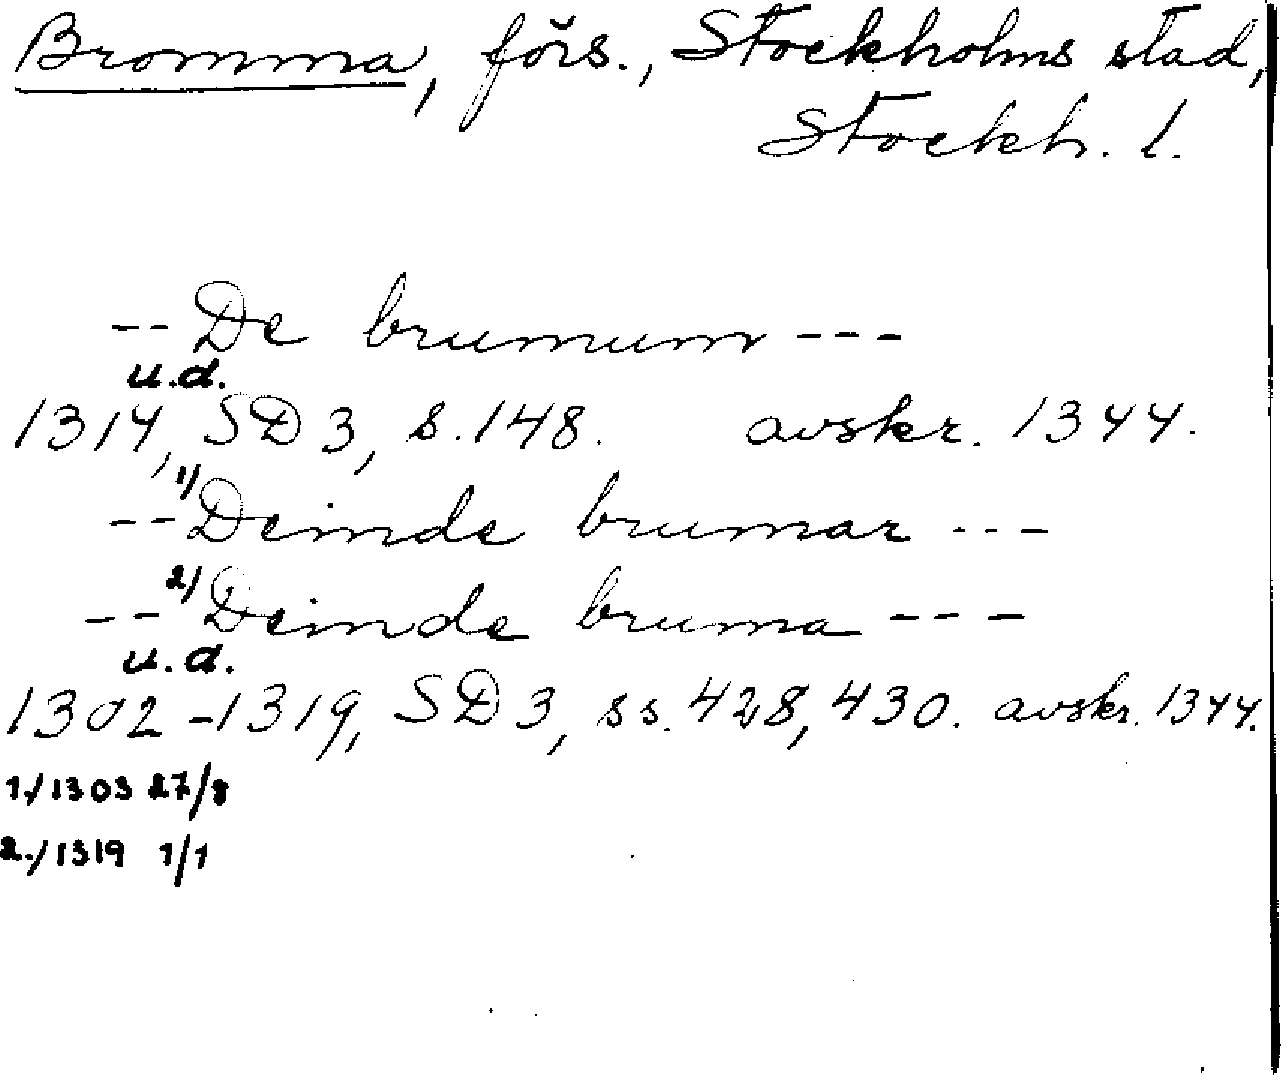 Bromma, förs., Stockholms stad,
Stockh. l.
-- De brumum ---
u.d.
1314, SD 3, s. 148. avskr. 1344.
-- 1) Deinde brumar ---
-- 2) Deinde bruma ---
u.d.
1302-1319, SD 3, ss. 428, 430. avskr. 1344.
1./ 1303 27/8
2./ 1319 1/1